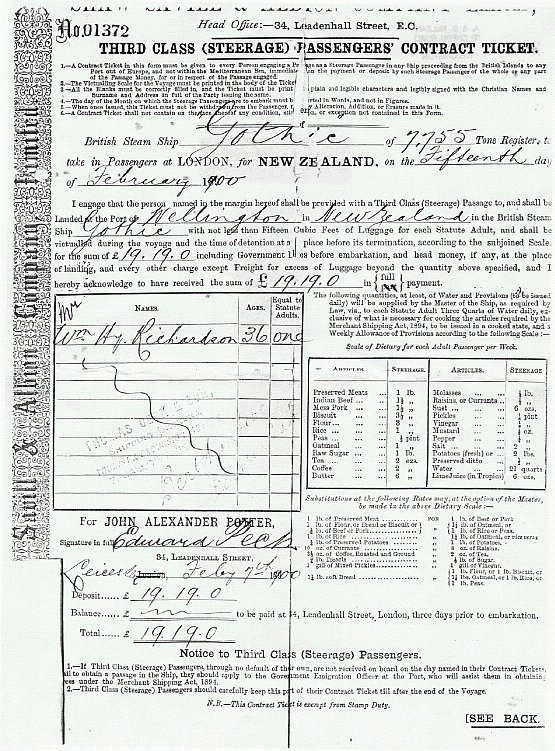 SHAW SAVILL & ALBION COMPANY Limited,
No. 01372
Head Office:—34, Leadenhall Street, E.C.
THIRD CLASS (STEERAGE) PASSENGERS' CONTRACT TICKET.
1.—A Contract Ticket in this form must be given to every Person engaging a Passage as a Steerage Passenger in any Ship proceeding from the British Islands to any
Port out of Europe, and not within the Mediterranean Sea, immediately on the payment or deposit by such Steerage Passenger of the whole or any part
of the Passage Money, for or in respect of the Passage engaged.
2.—The Victualling Scale for the Voyage must be printed in the body of the Ticket
3.—All the Blanks must be correctly filled in, and the Ticket must be plain and legible characters and legibly signed with the Christian Names and
Surname and Address in full of the Party issuing the same.
4.—The day of the Month on which the Steerage Passengers are to embark must be inserted in Words, and not in Figures.
5.—When once issued, this Ticket must not be withdrawn from the Passenger, any Alteration, Addition, or Erasure made in it.
6.—A Contract Ticket shall not contain on the face thereof any condition, or exception not contained in this Form.
British Steam Ship Gothic of 7,755 Tons Register, to
take in Passengers at LONDON, for NEW ZEALAND, on the Fifteenth day
of February 1900
I engage that the person named in the margin hereof shall be provided with a Third Class (Steerage) Passage to, and shall be
Landed at the Port of Wellington in New Zealand in the British Steam
Ship Gothic with not less than Fifteen Cubic Feet of Luggage for each Statute Adult, and shall be
victualled during the voyage and the time of detention at a place before its termination, according to the subjoined Scale,
for the sum of £ 19.19.0 including Government dues before embarkation, and head money, if any, at the place
of landing, and every other charge except Freight for excess of Luggage beyond the quantity above specified, and I
hereby acknowledge to have received the sum of £ 19.19.0 in full payment.
NAMES. AGES. Equal to Statute Adults.
Mr
Wm Hy. Richardson 36 one
The following quantities, at least, of Water and Provisions (to be issued
daily) will be supplied by the Master of the Ship, as required by
Law, viz., to each Statute Adult Three Quarts of Water daily, exclusive
of what is necessary for cooking the articles required by the
Merchant Shipping Act, 1894, to be issued in a cooked state, and a
Weekly Allowance of Provisions according to the following Scale:—
Scale of Dietary for each Adult Passenger per Week.
ARTICLES. STEERAGE. ARTICLES. STEERAGE
Preserved Meats 1 lb. Molasses ½ lb.
Indian Beef 1½ „ Raisins, or Currants
Mess Pork 1½ „ Suet 6 oz.
Biscuit 3½ „ Pickles pint
Flour 3 „ Vinegar
Rice 1 „ Mustard ½ oz.
Peas pint Pepper
Oatmeal 1 Salt 2 „
Raw Sugar 1 lb. Potatoes (fresh) or 2 lbs.
Tea 2 ozs. Preserved ditto
Coffee 2 „ Water 21 quarts
Butter 6 „ Lime Juice (in Tropics) 6 ozs.
Substitutions at the following Rates may, at the option of the Master,
be made in the above Dietary Scale:—
1 lb. of Preserved Meat FOR 1 lb. of Beef or Pork
1 lb. of Flour, or Bread or Biscuit
1 lb. of Rice
1 lb. of Preserved Potatoes
10 oz. of Currants
3½ oz. of Coffee, Roasted and Ground
1 gill of Mixed Pickles 1 gill of Vinegar.
1¼ lb. Soft Bread
For JOHN ALEXANDER POTTER,
Signature in full Edward Peck
34, LEADENHALL STREET,
Leicester London, Feby 7th 1900
Deposit £ 19.19.0
Balance £ to be paid at 34, Leadenhall Street, London, three days prior to embarkation.
Total £ 19.19.0
Notice to Third Class (Steerage) Passengers.
1.—If Third Class (Steerage) Passengers, through no default of their own, are not received on board on the day named in their Contract Tickets,
fail to obtain a passage in the Ship, they should apply to the Government Emigration Officer at the Port, who will assist them in obtaining
under the Merchant Shipping Act, 1894.
2.—Third Class (Steerage) Passengers should carefully keep this part of their Contract Ticket till after the end of the Voyage.
N.B.—This Contract Ticket is exempt from Stamp Duty.
[SEE BACK.